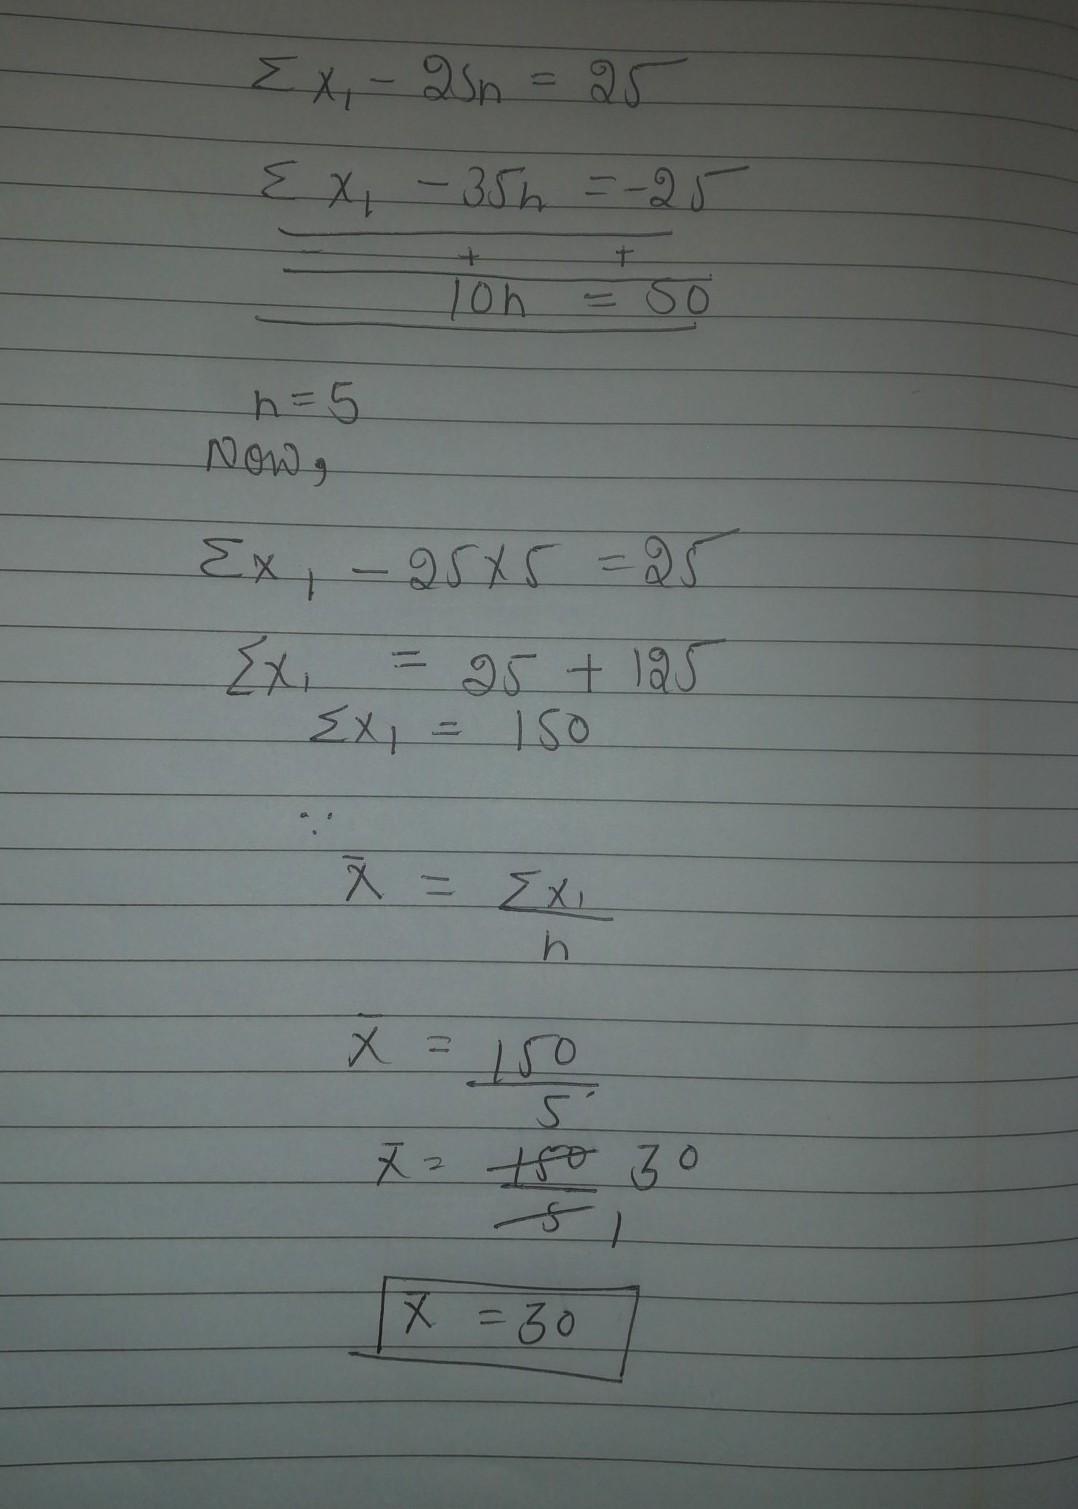 Σx₁ - 25n = 25
Σx₁ - 35n = -25
- + +
10n = 50
n = 5
Now,
Σx₁ - 25×5 = 25
Σx₁ = 25 + 125
Σx₁ = 150
∵
x̄ = Σx₁
n
x̄ = 150
5
x̄ = 150 30
5 1
x̄ = 30